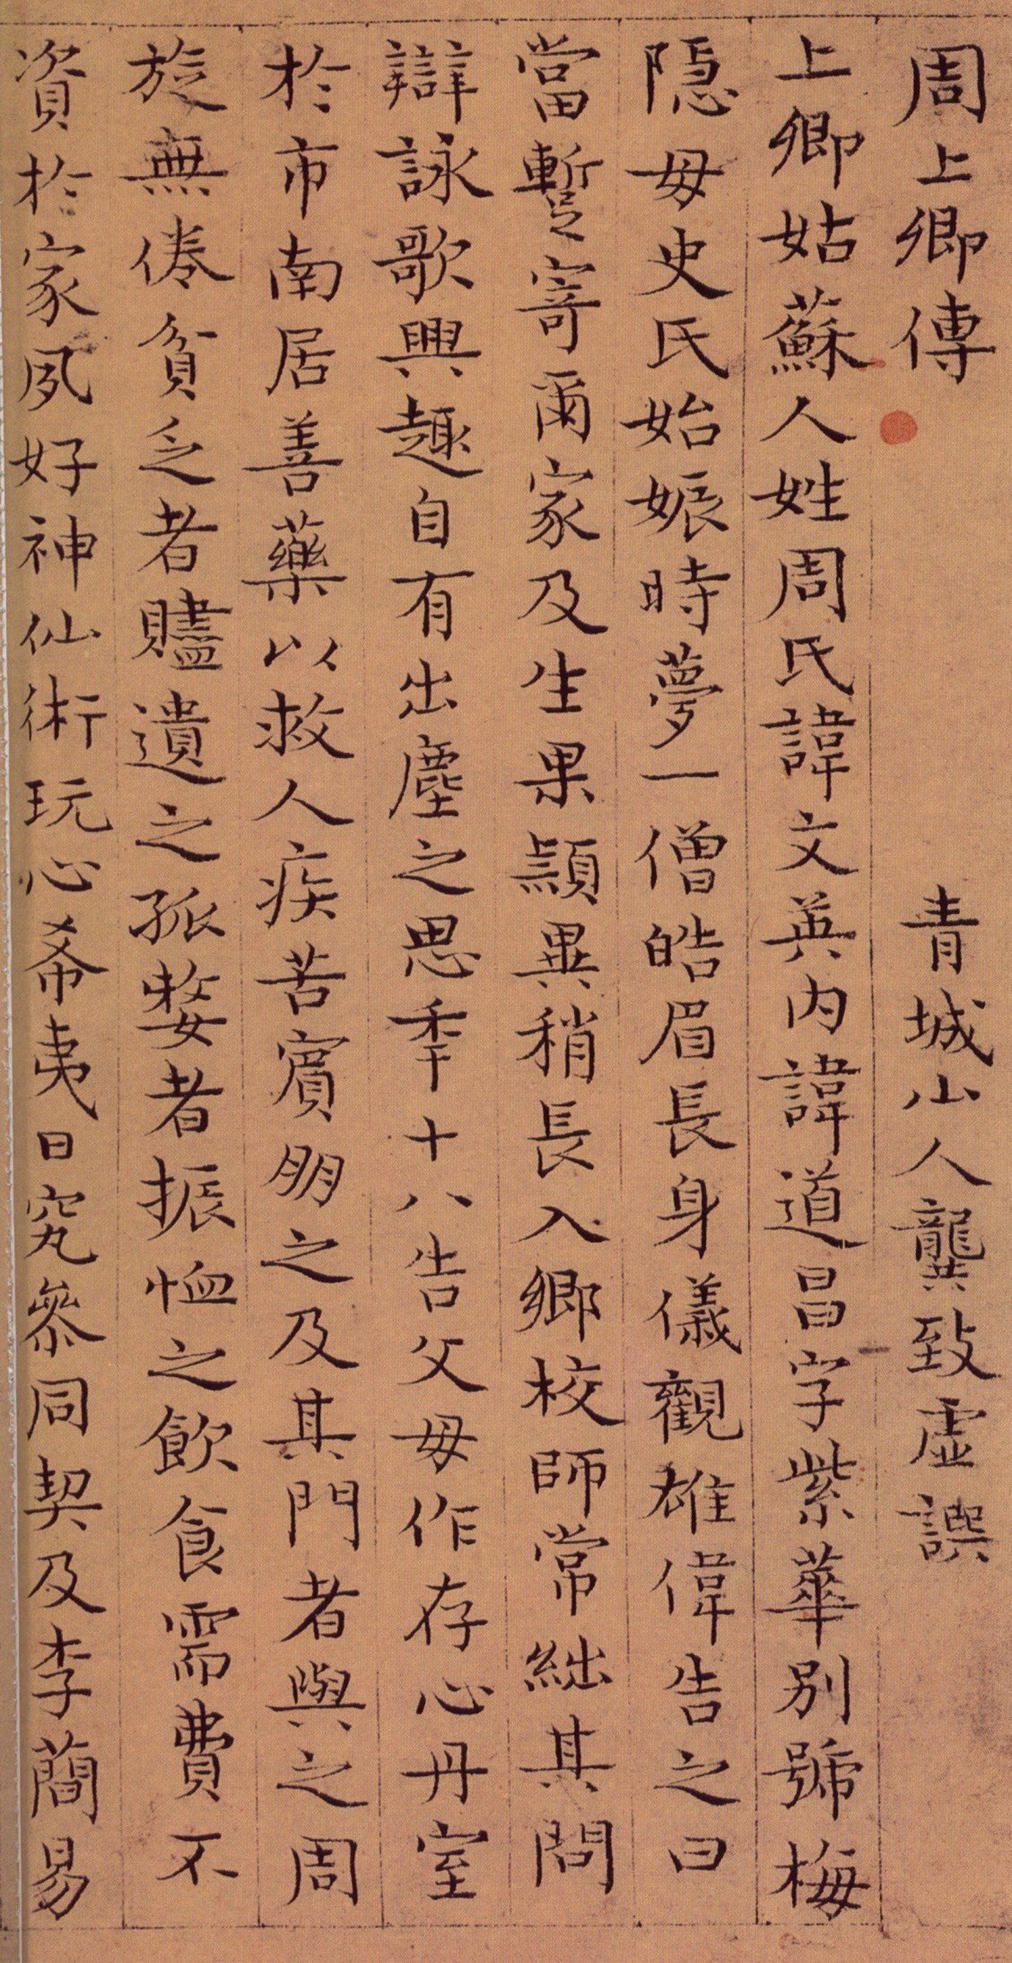 周上卿傳　青城山人龔致虛譔
上卿姑蘇人姓周氏諱文英内諱道昌字紫華别號梅
隠毋史氏始娠時夢一僧皓眉長身儀觀雄偉告之曰
當蹔寄爾家及生果顈異稍長入鄉校師常絀其問
辯詠歌興趣自有出塵之思秊十八告父毋作存心丹室
於市南居善藥以救人疾苦賓朋之及其門者與之周
旋無倦貧乏者贐遺之孤嫠者振恤之飲食需費不
資於家夙好神仙術玩心希夷日究叅同契及李蕳易